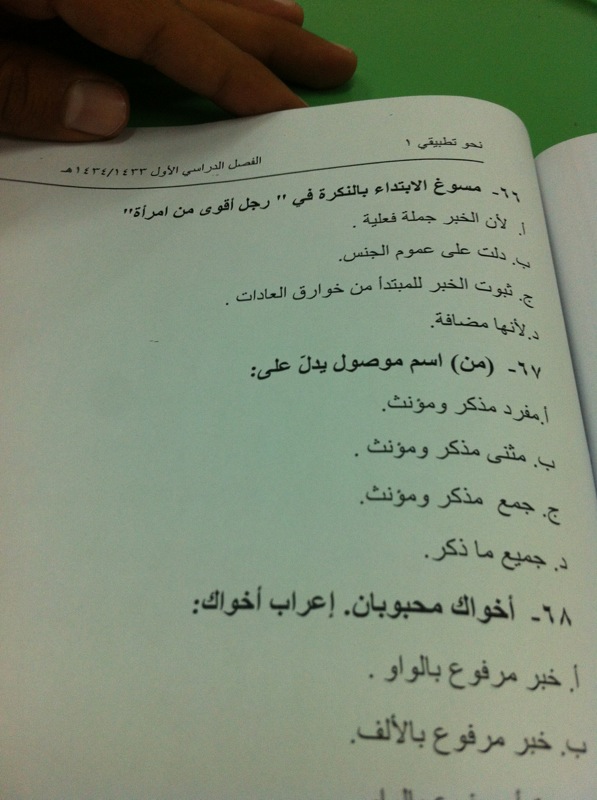 نحو تطبيقي ١
الفصل الدراسي الأول ١٤٣٤/١٤٣٣هـ
٦٦- مسوغ الابتداء بالنكرة في " رجل أقوى من امرأة"
أ. لأن الخبر جملة فعلية .
ب. دلت على عموم الجنس.
ج. ثبوت الخبر للمبتدأ من خوارق العادات .
د.لأنها مضافة.
٦٧- (من) اسم موصول يدلّ على:
أ.مفرد مذكر ومؤنث.
ب. مثنى مذكر ومؤنث .
ج. جمع مذكر ومؤنث.
د. جميع ما ذكر.
٦٨- أخواك محبوبان. إعراب أخواك:
أ. خبر مرفوع بالواو .
ب. خبر مرفوع بالألف.